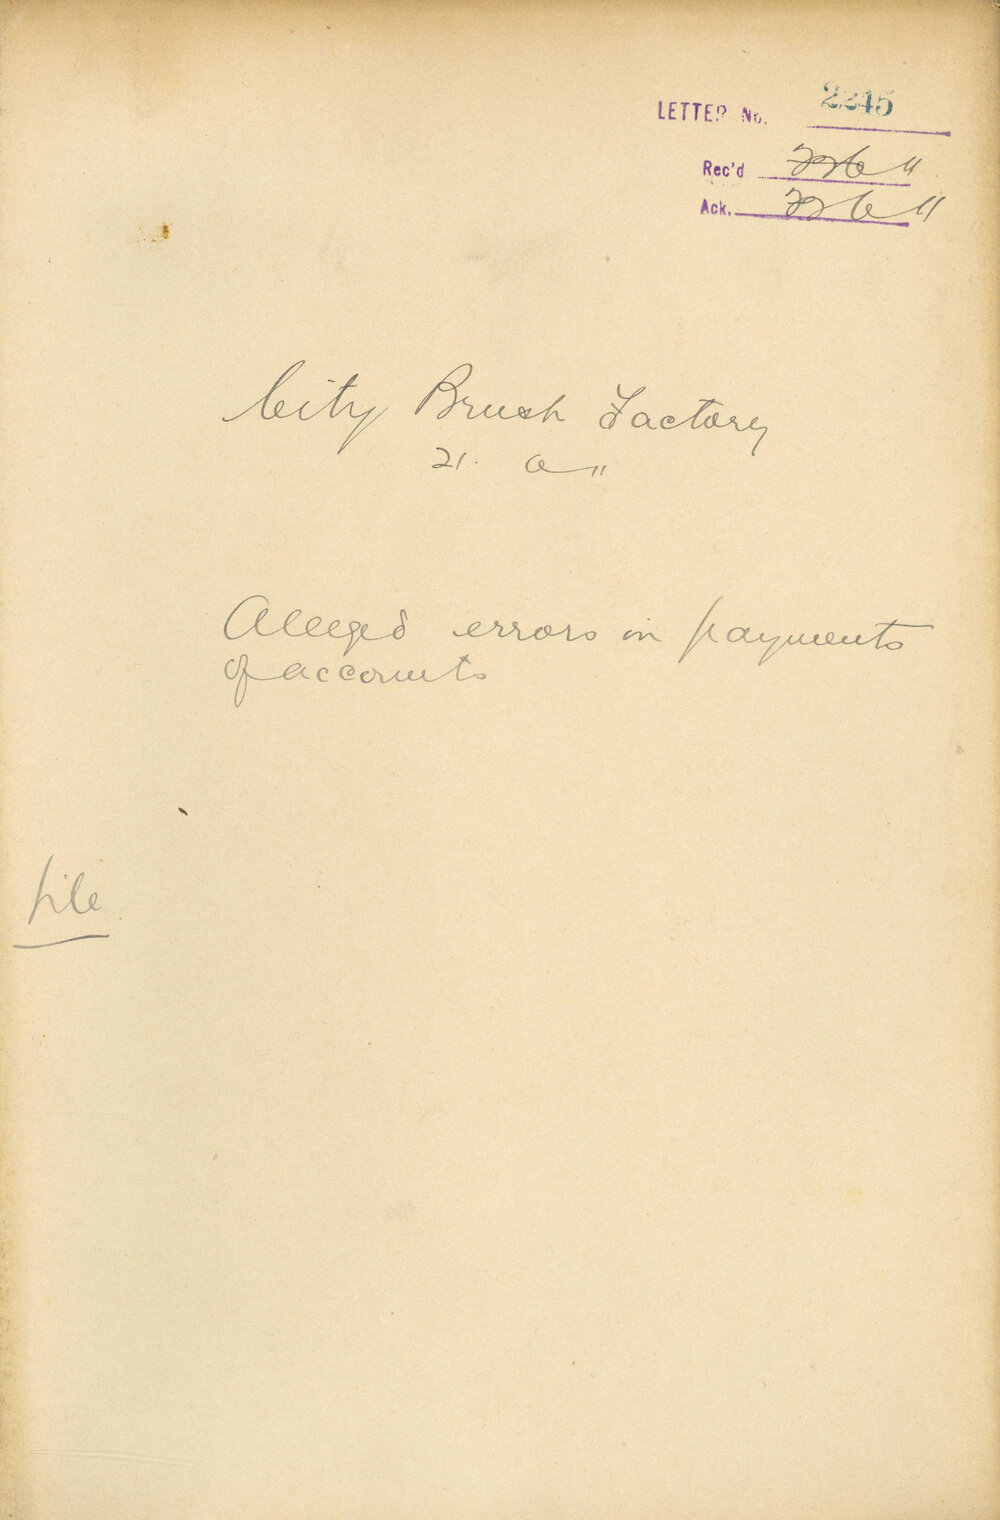 LETTER No. 2245
Rec'd 22 6 11
Ack. 22 6 11
City Brush Factory
21. 6 11
Alleged errors in payments
of accounts
file